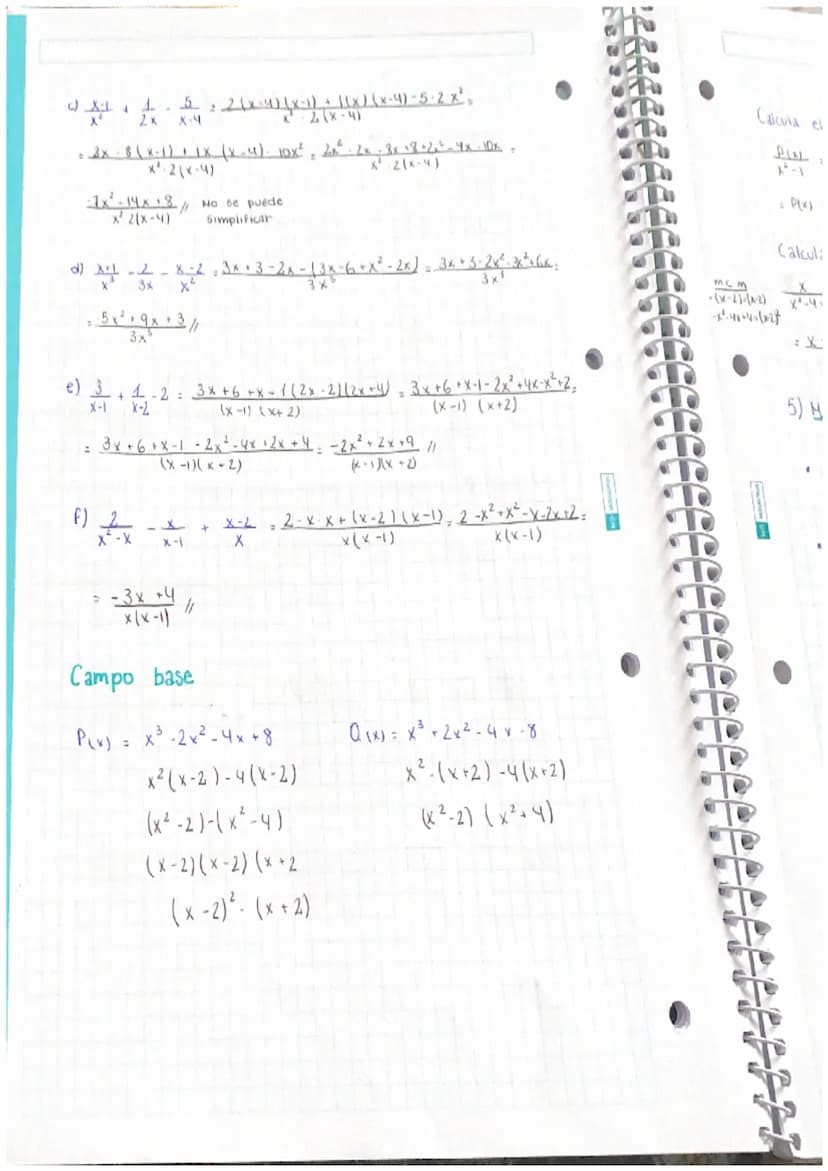 c) x-1/x² + 1/2x - 5/x-4 = 2(x-4)(x-1)+1(x)(x-4)-5·2x²/x²·2(x-4) =
= 2x-8(x-1)+1x(x-4)-10x²/x²·2(x-4) = 2x²-2x-8x+8+2x²-4x-10x/x²·2(x-4) =
-7x²-14x+8/x²2(x-4) // No se puede simplificar
d) x+1/x³ - 2/3x - x-2/x² = 3x+3-2x-(3x-6+x²-2x)/3x³ = 3x+3-2x²-3x²+6x/3x³ =
= 5x²+9x+3/3x³ //
e) 3/x-1 + 1/x-2 - 2 = 3x+6+x-1(2x-2)(2x+4)/(x-1)(x+2) = 3x+6+x-1-2x²+4x-x²+2/(x-1)(x+2) =
= 3x+6+x-1-2x²-4x+2x+4/(x-1)(x+2) = -2x²+2x+9/(x-1)(x+2) //
f) 2/x²-x - x/x-1 + x-2/x = 2-x·x+(x-2)(x-1)/x(x-1) = 2-x²+x²-x-2x+2/x(x-1) =
= -3x+4/x(x-1) //
Campo base
P(x) = x³-2x²-4x+8
x²(x-2)-4(x-2)
(x²-2)-(x²-4)
(x-2)(x-2)(x+2
(x-2)²·(x+2)
Q(x) = x³+2x²-4x-8
x²·(x+2)-4(x+2)
(x²-2)(x²+4)
Calcula
P(x)/x²-1 =
= P(x)
Calcula
mcm
x/x²-4
= x
5)